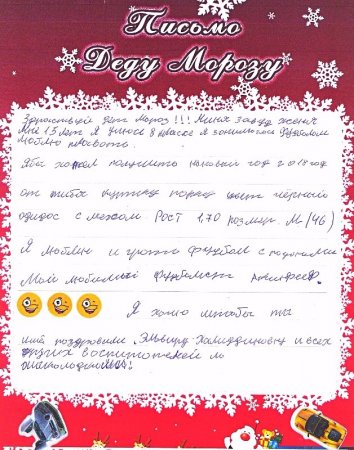 Письмо
Деду Морозу
Здравствуй дет мороз!!! Меня завуд
Мне 15 лет. Я учюсь 8 класе я занимаюсь футболом
люблю
Я бы хотел получить на новый год 2018 год
от тибя куртку парку цвет черный
адидас с мехом. Рост 170 розмер M (46)
Я люблю и грать футбол с
Мой любимый футболист
Я хочю штобы ты
ищё поздровил Эльвиру Халиддиновну и всех
других воспитателей и